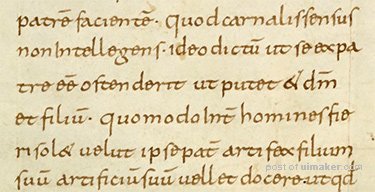 patrē facientē. Quod carnalis sensus
non intellegens. ideo dictū ut se ex pa
tre eē ostenderit ut putet & dm̄
et filiū. quomodo Int̄ homines fie
ri sol& velut ipse pat̄ artifex filium
suū artificiū suū vellet docere. ut qd
post of uimaker.com